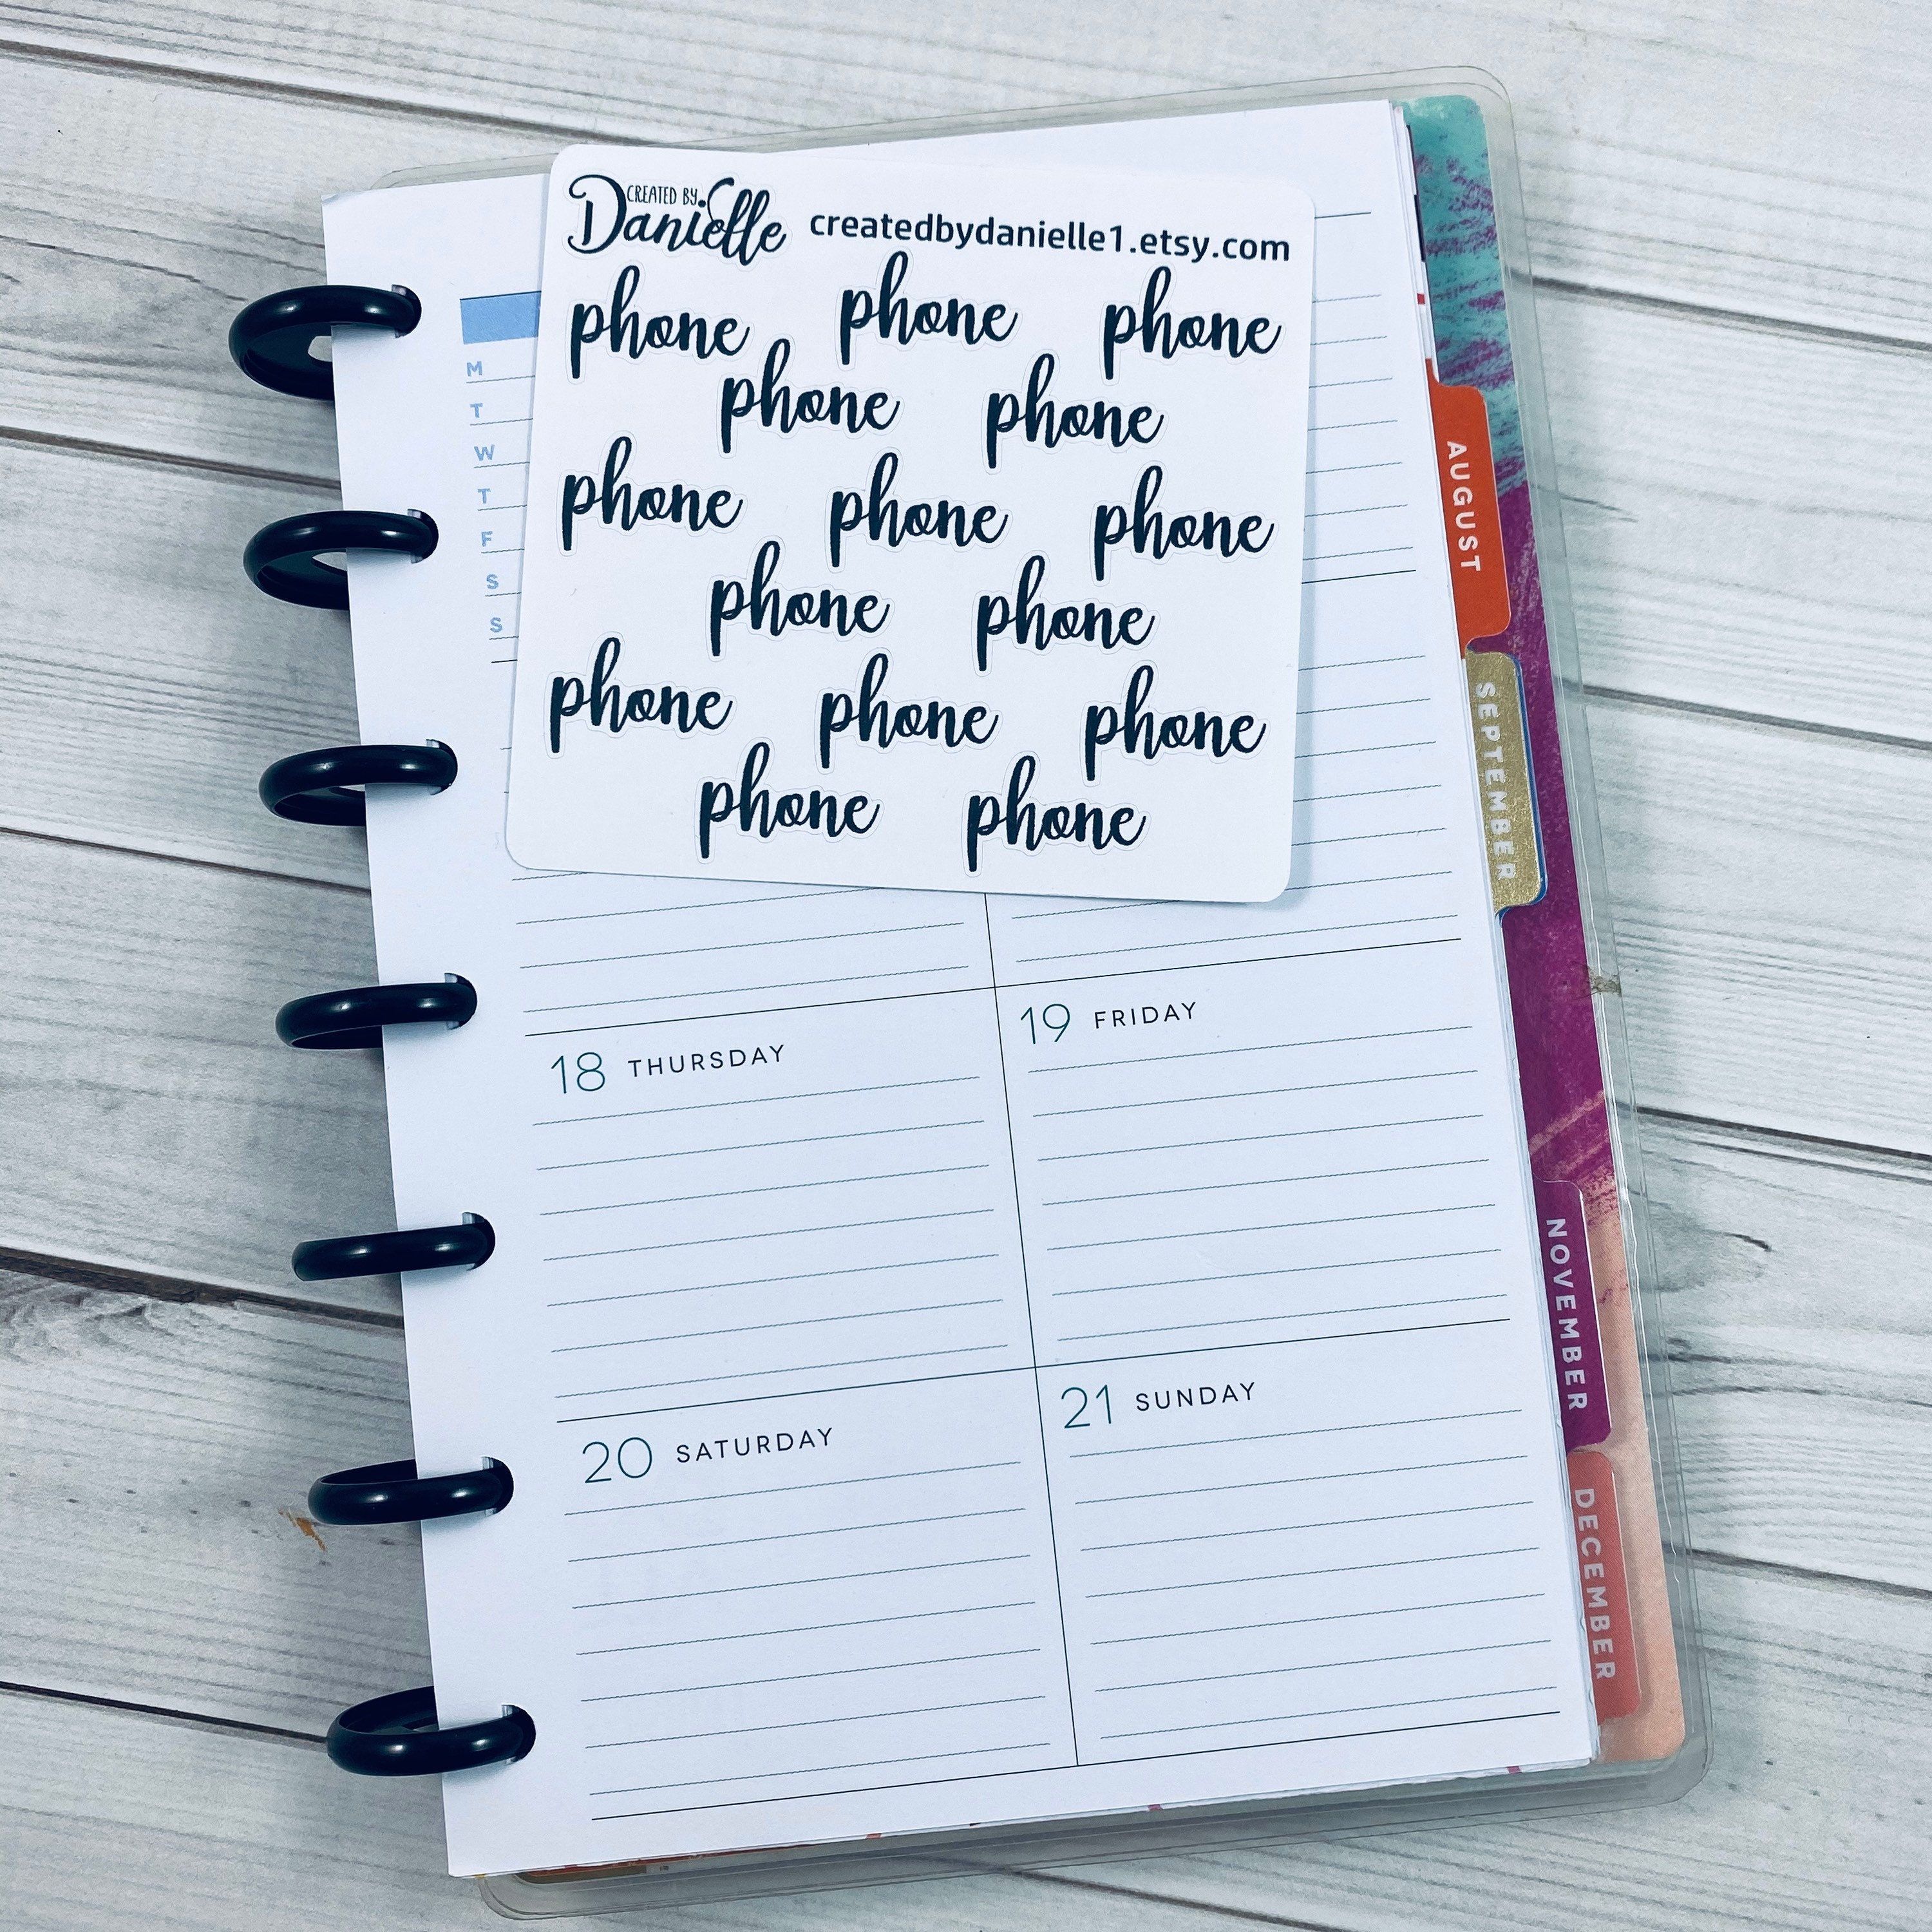 CREATED BY
Danielle
createdbydanielle1.etsy.com
phone phone phone
phone phone
phone phone phone
phone phone
phone phone phone
phone phone
M
T
W
T
F
S
S
18 THURSDAY
19 FRIDAY
20 SATURDAY
21 SUNDAY
AUGUST
SEPTEMBER
NOVEMBER
DECEMBER